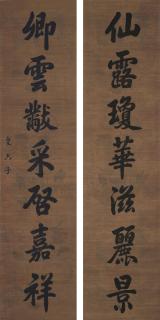 仙露瓊華滋麗景
卿雲黻采啓嘉祥